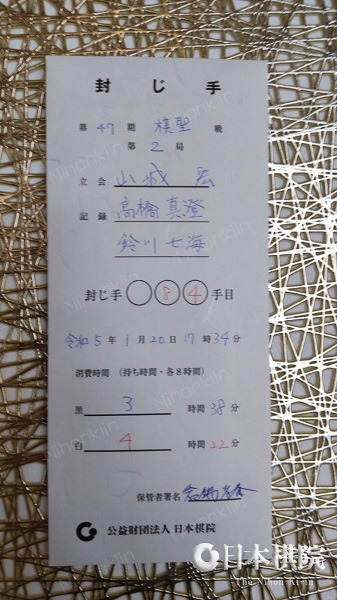 封じ手
第47期 棋聖戦
第2局
立会 山城 宏
記録 高橋真澄
鈴川七海
封じ手 ○ 8 4 手目
令和5年1月20日17時34分
消費時間 (持ち時間・各8時間)
黒 3 時間38分
白 4 時間22分
保管者署名
公益財団法人 日本棋院
日本棋院
The Nihon Ki-in